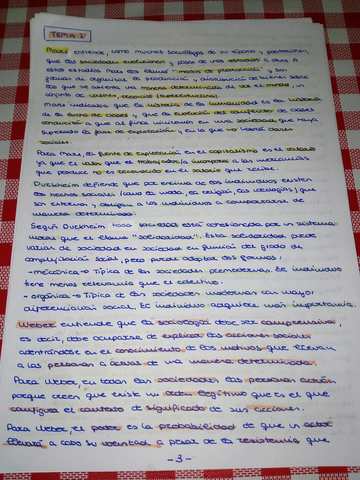 TEMA 1
Marx entiende, como muchos sociólogos de su época y posteriores,
que las sociedades evolucionan y pasan de unos estadios a otros. A
estos estadios Marx los llama "modos de producción" y son
formas de organizar la producción y distribución de bienes sobre
las que se levanta una manera determinada de ver el mundo, un
conjunto de valores, creencias (superestructura).
Marx indicaba que la historia de la humanidad es la historia
de la lucha de clases y que la evolución del conflicto de clases
conducirá a que al final vivamos en una sociedad que haya
superado la fase de explotación, en la que no habrá clases
sociales.
Para Marx, la fuente de explotación en el capitalismo es el salario
ya que el valor que el trabajador/a incorpora a las mercancías
que produce no es reconocido en el salario que recibe.
Durkheim defiende que por encima de los individuos existen
los hechos sociales (como la moda, la religión, las ideologías) que
son externos y obligan a los individuos a comportarse de
manera determinada.
Según Durkheim toda sociedad está cohesionada por un sistema
moral que él llama "solidaridad". Esta solidaridad puede
variar de sociedad en sociedad en función del grado de
complejización social, pero puede adoptar dos formas:
- mecánica → Típica de las sociedades premodernas. El individuo
tiene menos relevancia que el colectivo.
- orgánica → Típica de las sociedades modernas con mayor
diferenciación social. El individuo adquiere más importancia.
Weber entiende que la sociología debe ser comprensiva,
es decir, debe ocuparse de explicar las acciones sociales
centrándose en el conocimiento de los motivos que llevan
a las personas a actuar de una manera determinada.
Para Weber, en todas las sociedades las personas actúan
porque creen que existe un orden legítimo que es el que
configura el contexto de significado de sus acciones.
Para Weber, el poder es la probabilidad de que un actor
llevará a cabo su voluntad a pesar de la resistencia que
- 3 -